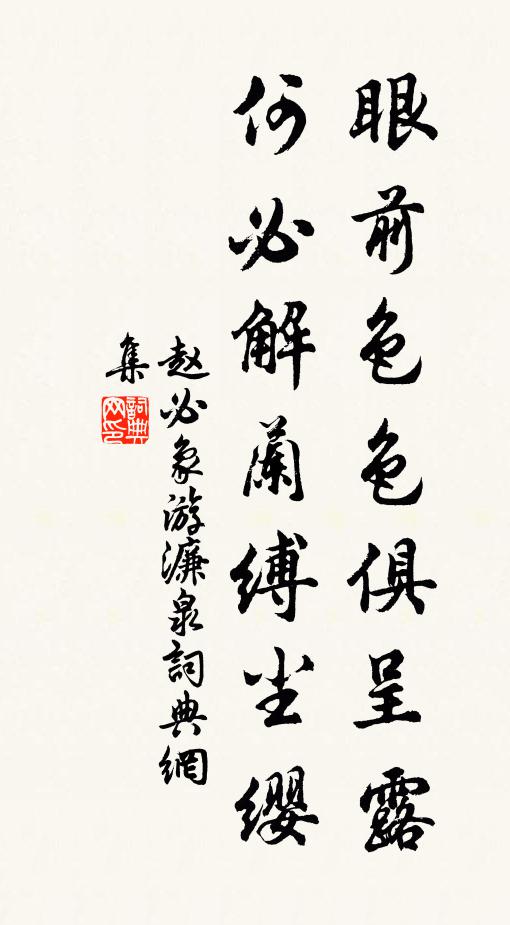 眼前色色俱呈露
何必解蘭缚尘缨
赵必象游濂泉詞典網
集
詞典网印